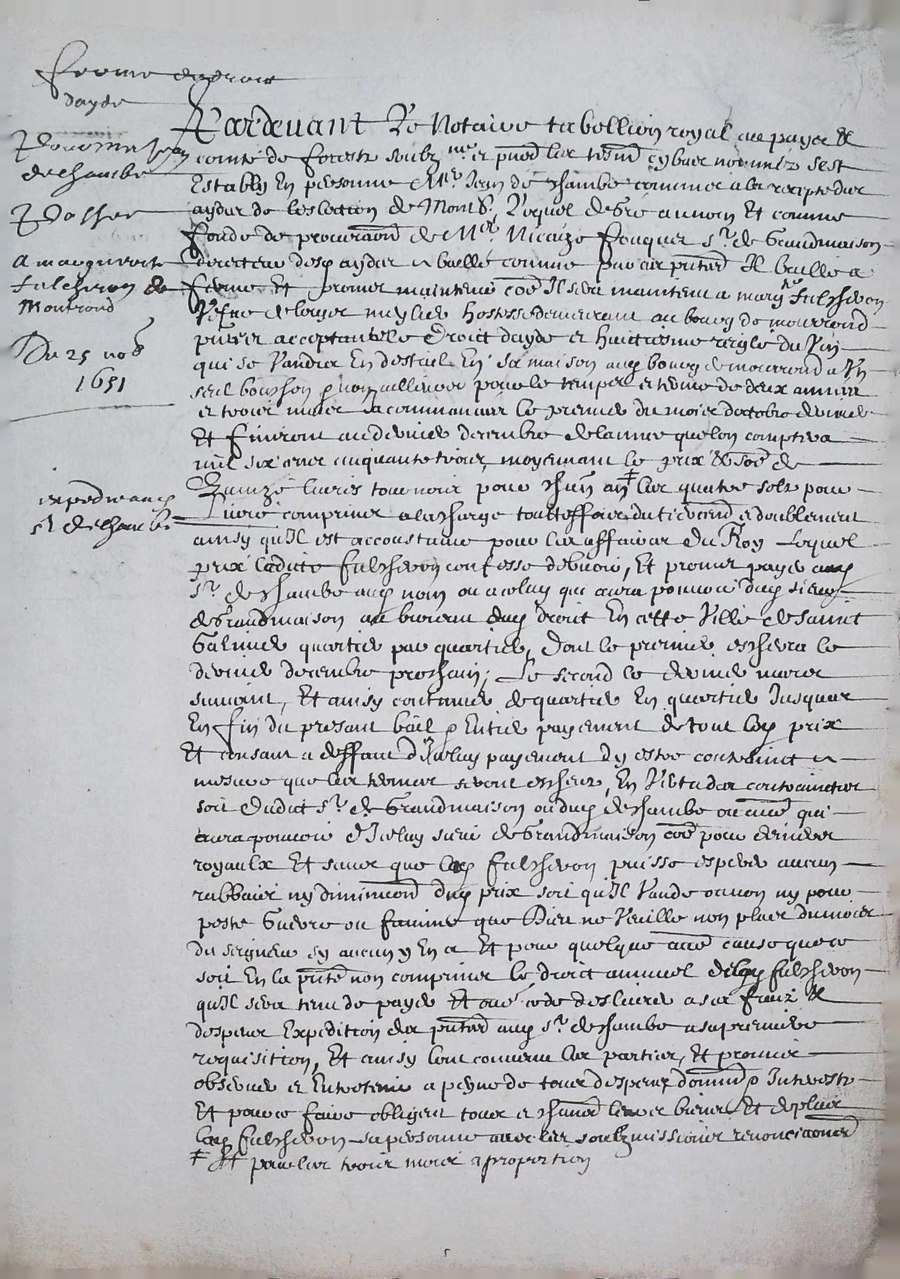 Ferme du droit
dayde
Pour Mre Jean
de Chambe
Passee
a marguerite
fulchiron de
Montrond
Du 25 nobre
1651
expedie audt
sr de chambe
Pardevant Le Notaire tabellion royal au payes &
comté de forestz soubzne et pnts les tesms cy bas nommez sest
Estably En personne Mre Jean de Chambe commis a la recepte des
aydes de leslection de Montb. Lequel de gre au nom Et comme
fonde de procuraon de Mre Nicaize fouquer sr de Grandmaison
directeur desd aydes a baille comme par ces pntes Il baille a
ferme Et promet maintenir coe Il sera maintenu a margte fulchiron
Vefue de loyer meylieu hostesse demeurant au bourg de mourrond
pnte et acceptante le droict dayde et huictiesme reigle du Vin
qui se Vandra En destail En sa maison aud bourg de mourrond a Un
seul bouschon & non ailleurs pour le temps et terme de deux annees
et trois mois a commancer le premier du mois doctobre dernier
Et finiront au dernier decembre de lannee que lon comptera
mil six cens cinquante trois, moyennant le prix & soe de
Quinze livres tournois pour chun an ╪ les quatre solz pour
Livre comprins a la charge tout effois du tiercement et doublement
ainsy quil est accoustume pour les affaires du Roy Lequel
prix Ladicte fulchiron confesse debvoir, Et promet payer aud
sr de chambe aud nom ou a celuy qui aura pouvoir dud sieur
de Grandmaison au bureau dud droit En cette Ville de saint
Galmier quartier par quartier, dont le premier eschera le
dernier decembre prochain, Le second le dernier mars
suivant, Et ainsy continuer de quartier En quartier Jusques
En fin du presant bail & Entier payement de tout led prix
Et consant a deffaut d'Iceluy payement dy estre contrainct a
mesure que les termes seront escheus, En Vertu des contrainctes
soit dudict sr de Grandmaison ou dud de chambe ou aue qui
aura pouvoir d'Iceluy sieur de Grandmaison coe pour deniers
royaulx Et sans que lad fulchiron puisse esperer aucun
rabbaix ny diminuon dud prix soit quil Vande ou non ny pour
peste Guerre ou famine que Dieu ne Veuille non plus du mois
du seigneur sy aucun y En a Et pour quelque aue cause que ce
soit En la pnte non comprins le droit annuel de lad fulchiron
qu'Il sera tenu de payer Et oue code desluire a ses fraiz &
despens Expedition des pntes aud sr de chambe a sa premiere
requisition, Et ainsy lont convenu les parties, Et promis
observer et Entretenir a peyne de tous despens domms & Interestz
Et pour ce faire obligent tous et chuns leurs biens Et de plus
lad fulchiron sa personne avec les soubzmissions renonciaons
╪ Et pour les trois mois a proportion